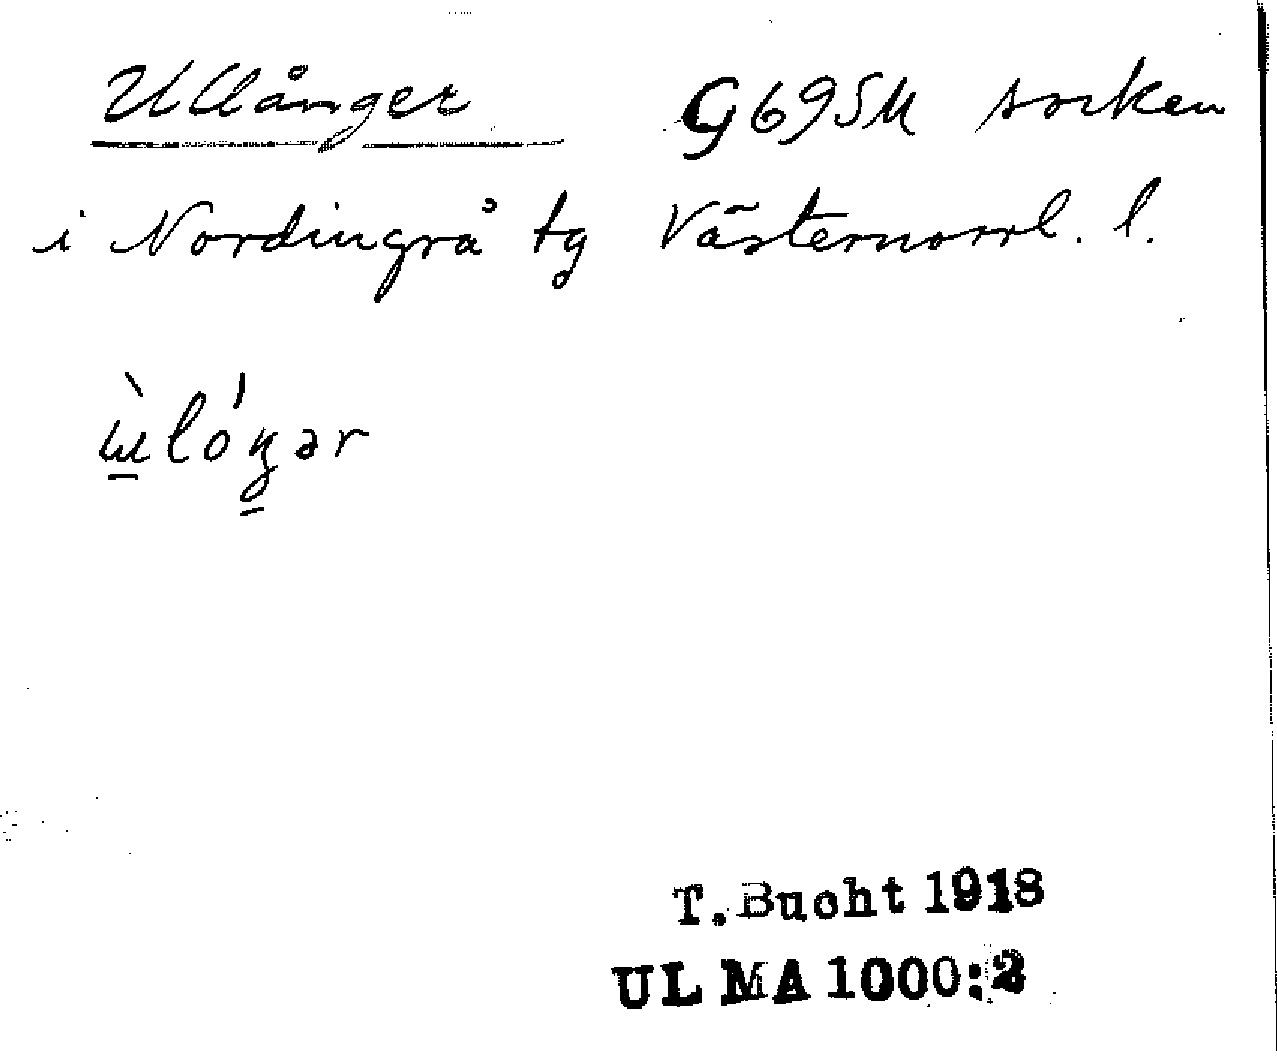 Ullånger G695M socken
i Nordingrå tg Västernorrl. l.
T. Bucht 1918
ULMA 1000:2